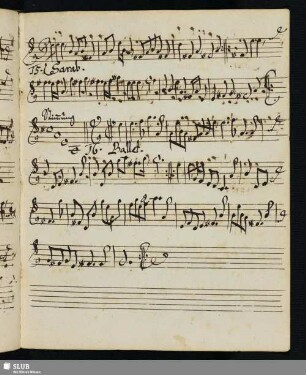 15. Sarab.
Stimung
16. Ballet.
SLUB